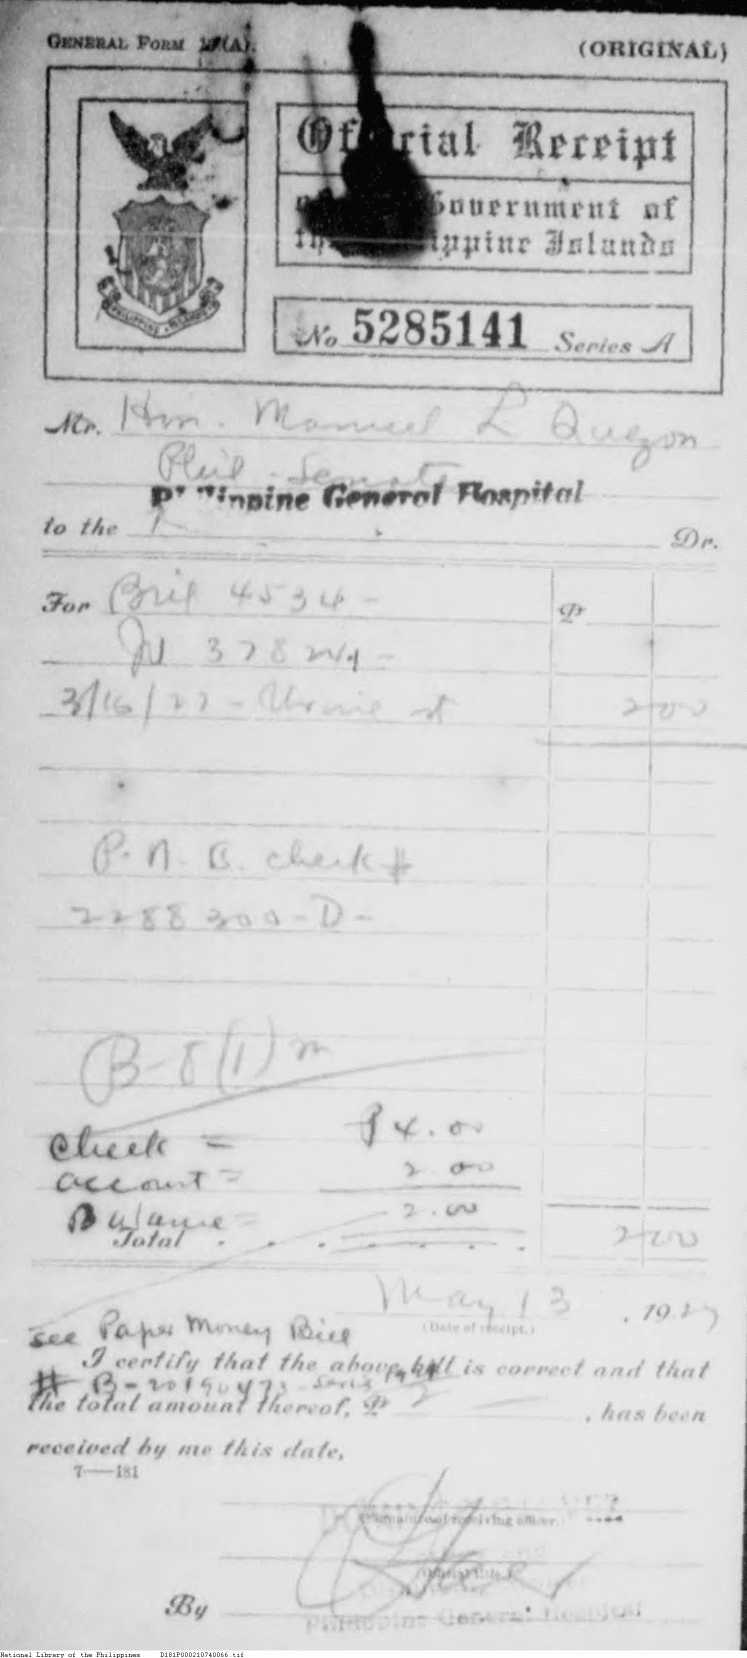 GENERAL FORM (A). (ORIGINAL)
Official Receipt
Government of
Philippine Islands
No 5285141 Series A
Mr. Hon. Manuel L Quezon
Phil. Senate
Philippine General Hospital
to the Dr.
For Bill 4534 - ₱
3/16/27 - Urine 200
P. N. B. check #
2288300 - D -
B-8(1)
check = ₱4.00
account = 2.00
Balance = 2.00
Total 200
May 13, 1927
(Date of receipt.)
see Paper Money Bill
I certify that the above bill is correct and that
# B-20190473
the total amount thereof, ₱ 2 - , has been
received by me this date,
7—181
(Signature of receiving officer.)
By
Philippine General Hospital
National Library of the Philippines D181P000210740066.tif